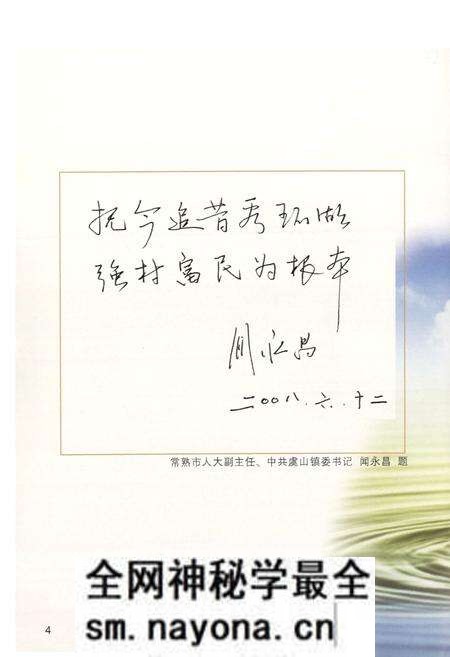 抚今追昔秀环湖
强村富民为根本
闻永昌
二〇〇八.六.十二
常熟市人大副主任、中共虞山镇委书记 闻永昌 题
全网神秘学最全
sm.nayona.cn
4